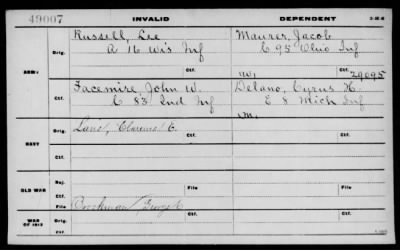 49007 INVALID DEPENDENT 3-258
Russell, Lee Maurer, Jacob
Orig. A 16 Wis Inf Orig. C 95 Ohio Inf
ARMY Ctf. 29095
Facemire, John W. Delano, Cyrus H.
Ctf. C 83 Ind Inf Ctf. E 8 Mich Inf
Orig. Lane, Clarence E. Orig.
NAVY
Ctf. Ctf.
Rej. Ctf.
OLD WAR
File File
WAR OF 1812 Orig. Brockman, George C. Orig. Ctf.